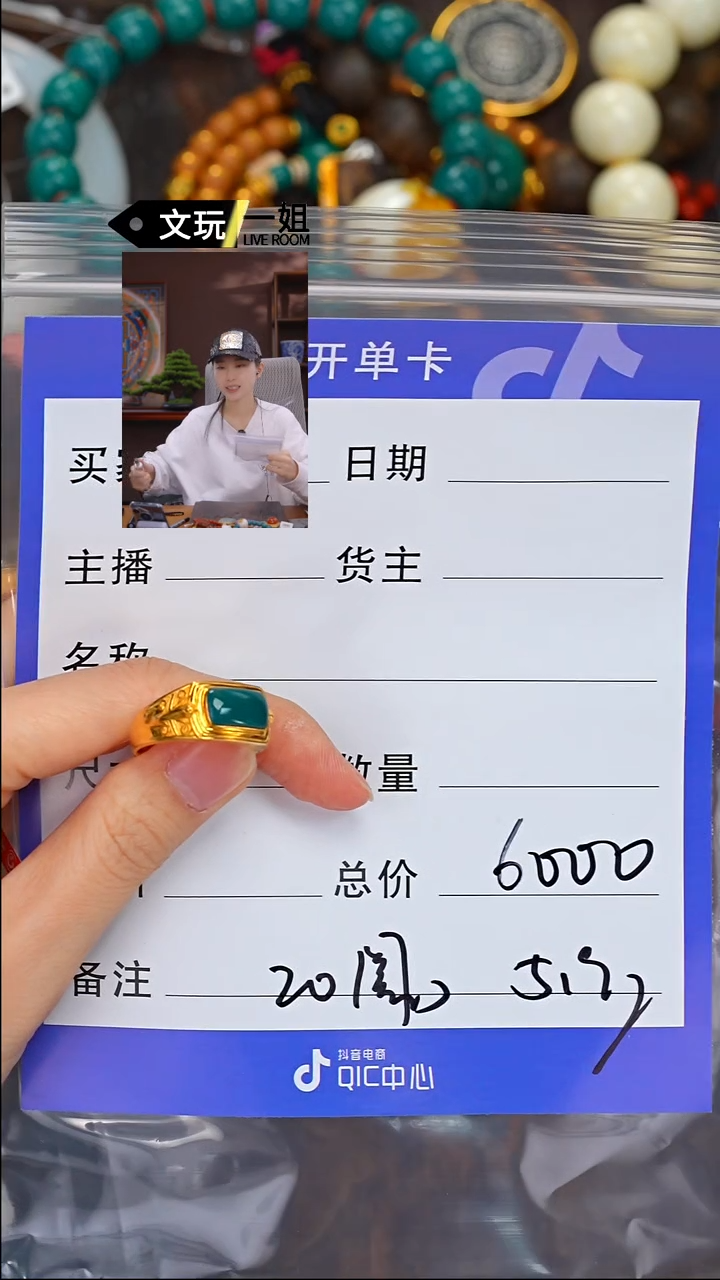 文玩一姐
LIVE ROOM
开单卡
买家 日期
主播 货主
名称
尺寸 数量
总价 6000
备注 20圈 5.19g
抖音电商
QIC中心